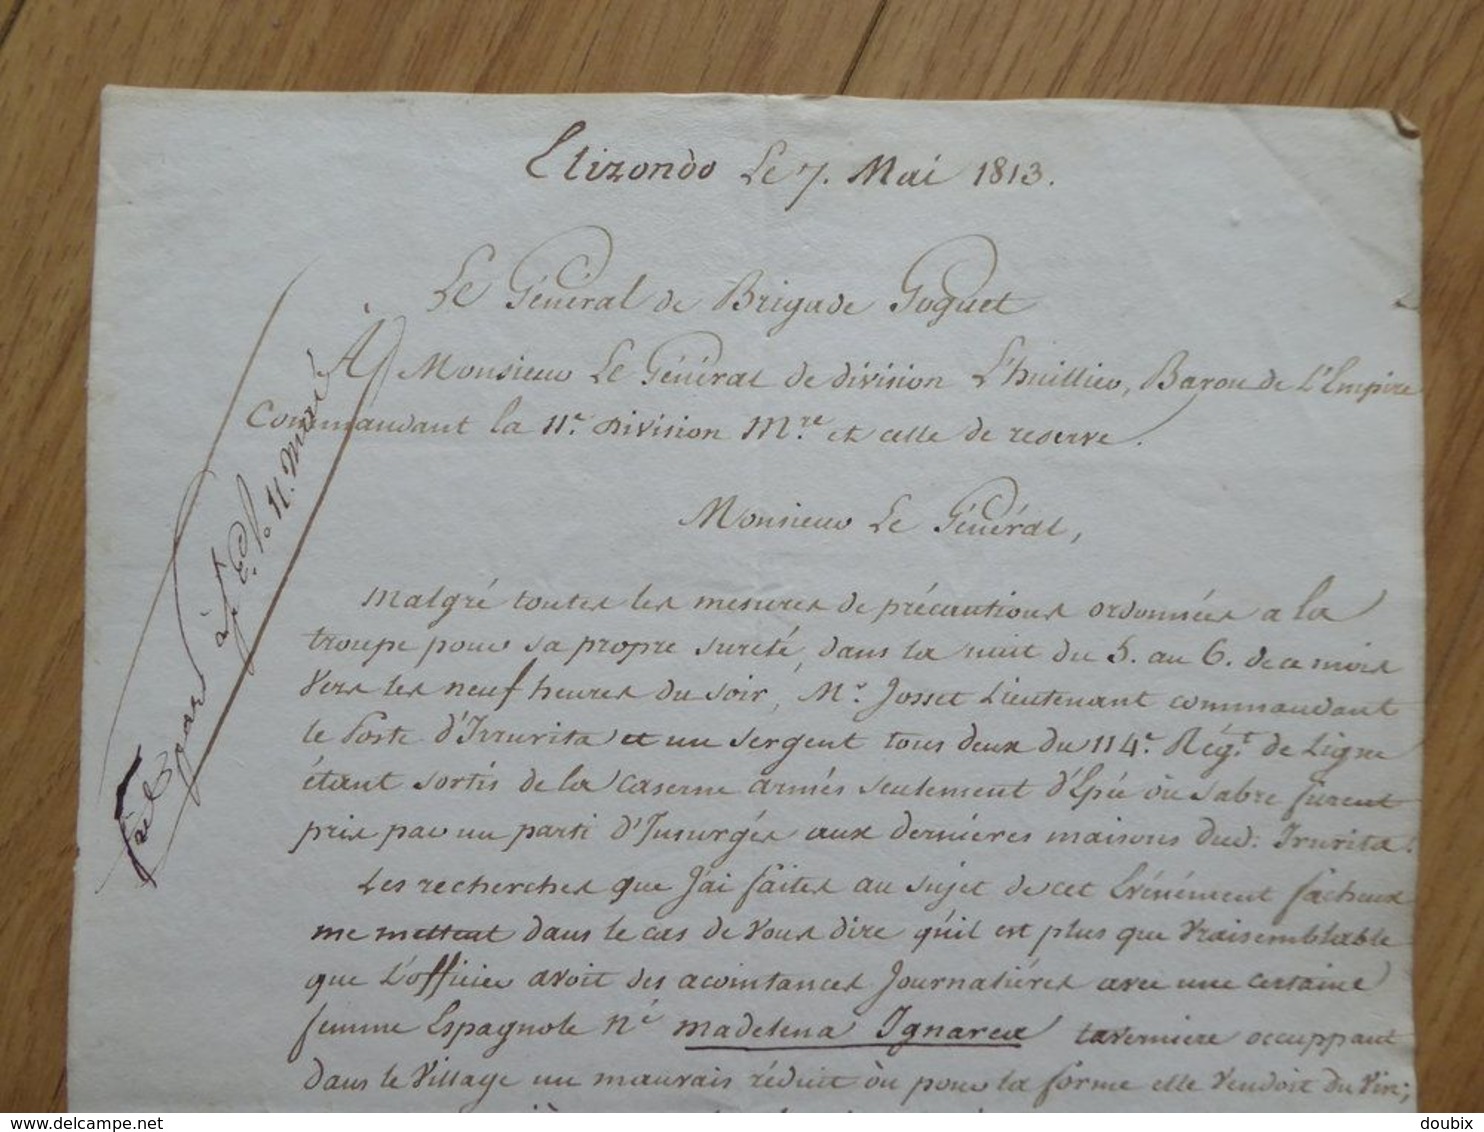 Elizondo Le 7. Mai 1813.
Le Général de Brigade Goguet
À Monsieur Le Général de division L'huillier, Baron de L'Empire
Commandant la 11.e division M.re et celle de reserve.
Monsieur Le Général,
Malgré toutes les mesures de précautions ordonnées a la
troupe pour sa propre sureté, dans la nuit du 5. au 6. de ce mois
Vers les neuf heures du soir, M.r Josset Lieutenant commandant
le Poste d'Irrurita et un sergent tous deux du 114.e Rég.t de Ligne
étant sortis de la caserne armés seulement d'Epée où sabre furent
pris par un parti d'Insurgés aux dernières maisons dud: Irrurita.
Les recherches que J'ai faites au sujet de cet Evénément fâcheux
me mettent dans le cas de Vous dire qu'il est plus que Vraisemblable
que L'officier avoit des acointances Journalières avec une certaine
femme Espagnole N.é Madelena Ignarea taverniere occuppant
dans le Village un mauvais réduit où pour la forme elle Vendoit du Vin;
11. Mai
delcampe.net
doubix